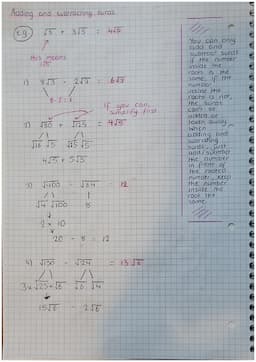 Adding and subtracting surds
eg √5 + 3√5 = 4√5
this means
1) 8√3 - 2√3 = 6√3
8-2=6
if you can,
simplify first
√16 √5 √25 √5
4√5 + 5√5
3) √400 - √64 = 12
√4 √100 8
2 × 10
20 - 8 = 12
- √24 = 13√6
15√6 - 2√6
You can only
add and
subtract surds
if the number
inside the
root is the
same, if the
number
inside the
roots is not,
the surds
can't be
added or
taken away
when
adding and
subtracting
surds, just
add/subtract
the number
in front of
the rooted
number, keep
the number
inside the
root the
same.